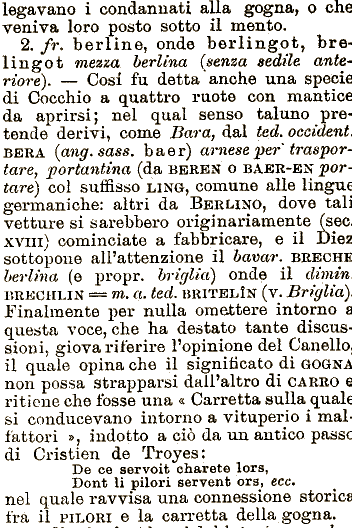 legavano i condannati alla gogna, o che
veniva loro posto sotto il mento.
2. fr. berline, onde berlingot, bre-
lingot mezza berlina (senza sedile ante-
riore). — Cosí fu detta anche una specie
di Cocchio a quattro ruote con mantice
da aprirsi; nel qual senso taluno pre-
tende derivi, come Bara, dal ted. occident.
BERA (ang. sass. baer) arnese per traspor-
tare, portantina (da BEREN O BAER-EN por-
tare) col suffisso LING, comune alle lingue
germaniche: altri da BERLINO, dove tali
vetture si sarebbero originariamente (sec.
XVIII) cominciate a fabbricare, e il Diez
sottopone all'attenzione il bavar. BRECHE
berlina (e propr. briglia) onde il dimin.
BRECHLIN = m. a. ted. BRITELÎN (v. Briglia).
Finalmente per nulla omettere intorno a
questa voce, che ha destato tante discus-
sioni, giova riferire l'opinione del Canello,
il quale opina che il significato di GOGNA
non possa strapparsi dall'altro di CARRO e
ritiene che fosse una « Carretta sulla quale
si conducevano intorno a vituperio i mal-
fattori », indotto a ciò da un antico passo
di Cristien de Troyes:
De ce servoit charete lors,
Dont li pilori servent ors, ecc.
nel quale ravvisa una connessione storica
fra il PILORI e la carretta della gogna.